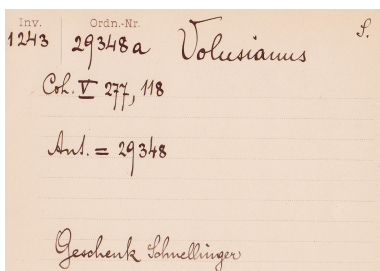 Inv. Ordn.-Nr. S.
1243 29348a Volusianus
Coh. V 277, 118
Ant. = 29348
Geschenk Schnellinger